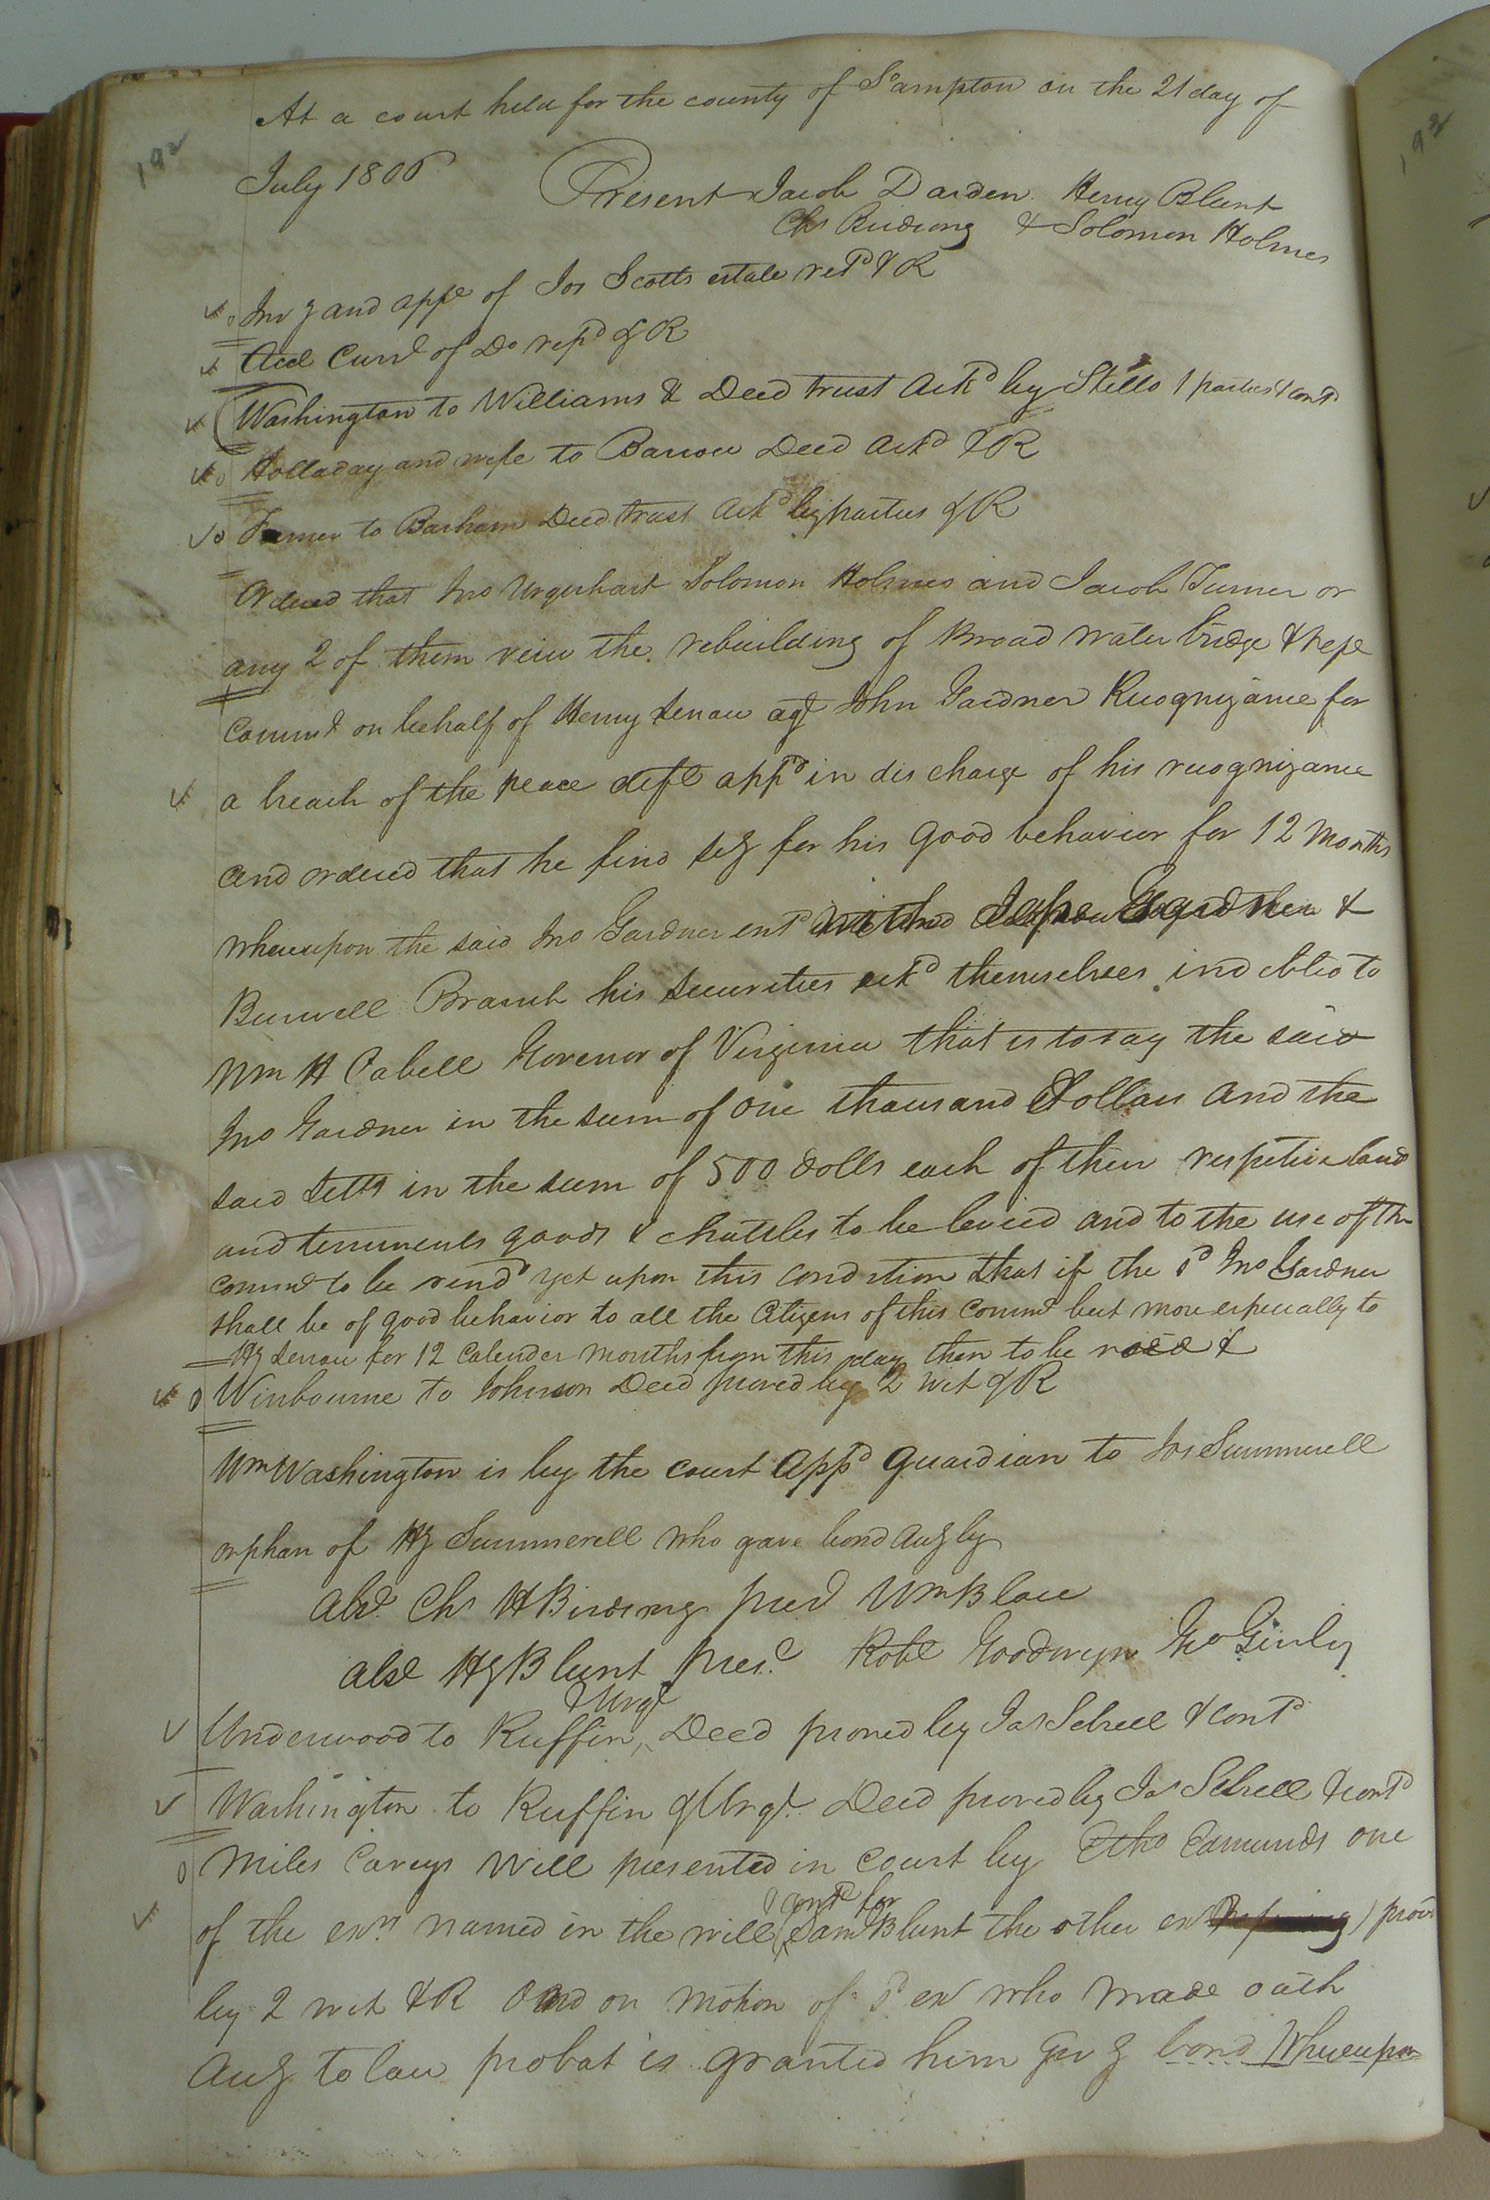 192
At a court held for the county of S'ampton on the 21 day of
July 1806
Present Jacob Darden Henry Blunt
Chs Birdsong & Solomon Holmes
Inv y and appt of Jos Scotts estate retd & R
Acct Currt of Do retd & R
Washington to Williams & Deed trust Ackd by Stello 1 parties & contd
Holladay and wife to Barrow Deed Ackd & R
Turner to Barham Deed trust Ackd by parties & R
Ordered that Jno Urquhart Solomon Holmes and Jacob Turner or
any 2 of them view the rebuilding of Broad water bridge & rept
Commt on behalf of Henry Senau agt John Gardner Recognizance for
a breach of the peace deft appd in discharge of his recognizance
and ordered that he find sey for his good behavior for 12 months
whereupon the said Jno Gardner entd &
Burwell Branch his securities ackd themselves indebted to
Wm H Cabell Govenor of Virginia that is to say the said
Jno Gardner in the sum of one thousand Dollars and the
said setts in the sum of 500 dolls each of their respetive land
and tenements goods & chattles to be levied and to the use of the
commt to be rendd yet upon this condition that if the sd Jno Gardner
shall be of good behavior to all the Citizens of this Commt but more especially to
Hy Senau for 12 Calender months from this day then to be void &
Winbourne to Johnson Deed proved by 2 wit & R
Wm Washington is by the court appd guardian to Jos Summerell
orphan of Hy Summerell who gave bond Aug ly
Abst Chs H Birdsong prest Wm Blow
abst Hy Blunt prest Robt Goodwyn Geo Gurley
& Urqt
Underwood to Ruffin Deed proved by Jas Sebrell & contd
Washington to Ruffin & Urqt Deed proved by Jas Sebrell & contd
Miles Careys Will presented in court by Etho Edmunds one
contd for
of the exrs named in the will (Saml Blunt the other ex ) prov
by 2 wit & R And on motion of sd ex who made oath
Aug to law probat is granted him giv g bond Whereupon
192